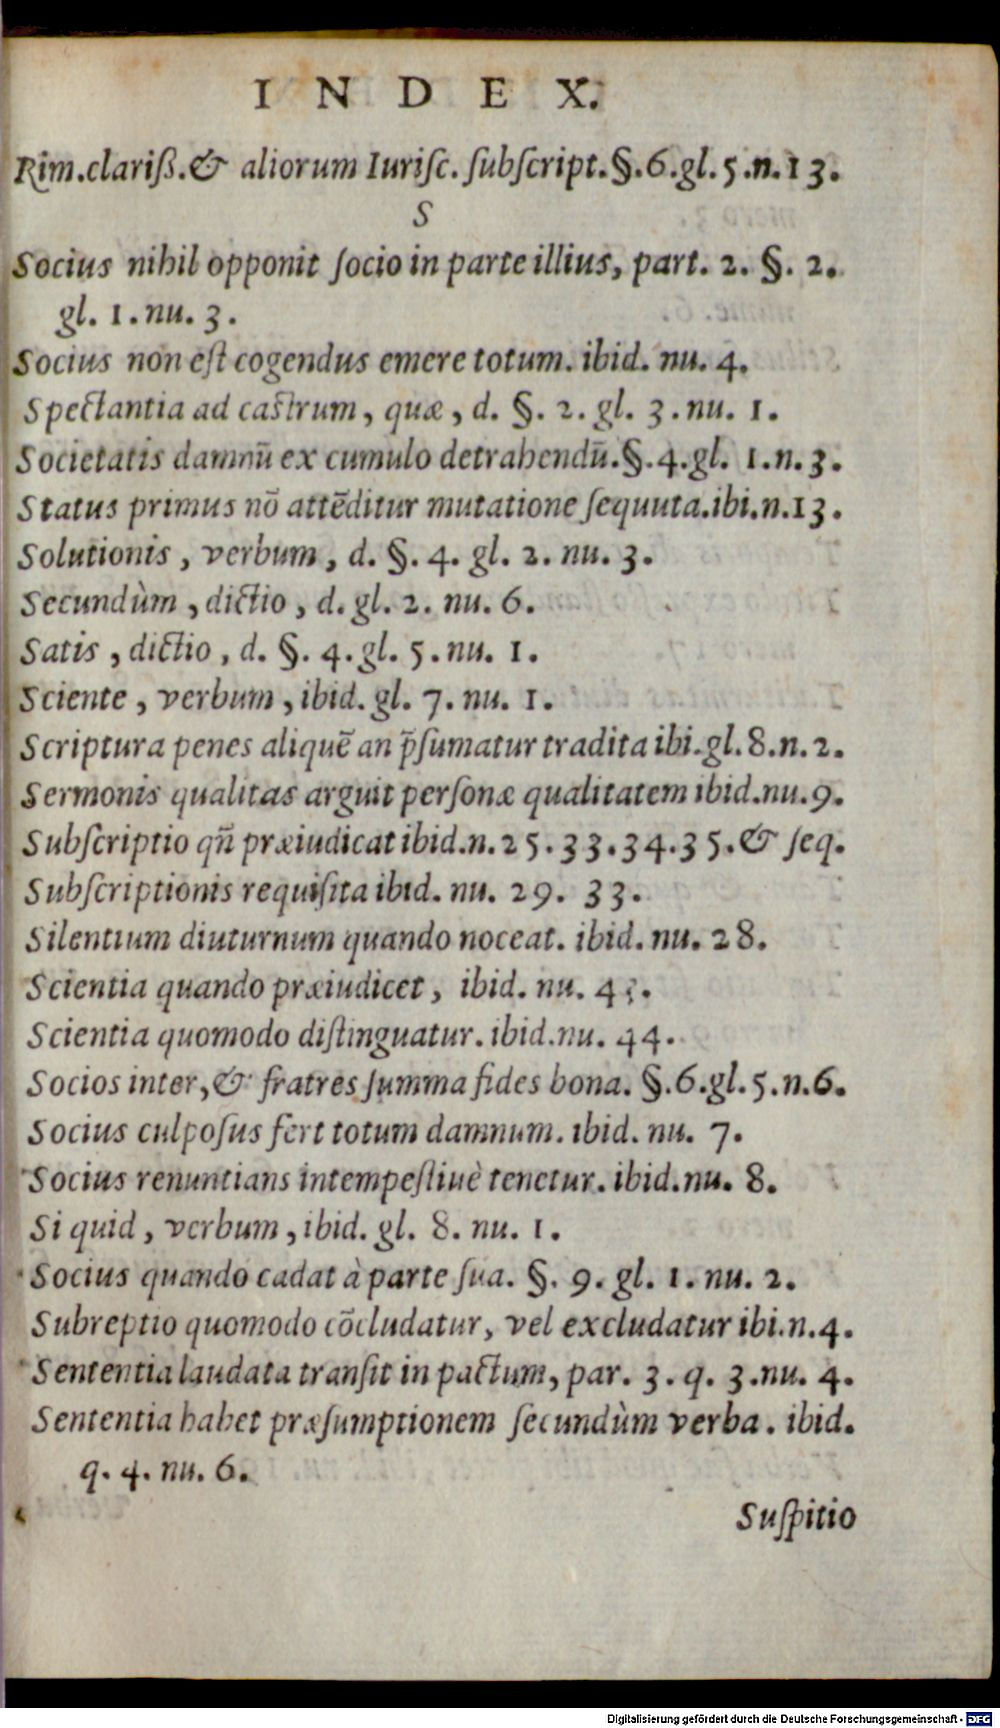 INDEX.
Rim.clariß.& aliorum Iurisc. subscript.§.6.gl.5.n.13.
S
Socius nihil opponit socio in parte illius, part. 2. §. 2.
gl. 1. nu. 3.
Socius non est cogendus emere totum. ibid. nu. 4.
Spectantia ad castrum, quæ, d. §. 2. gl. 3. nu. 1.
Societatis damnū ex cumulo detrahendū.§.4.gl. 1.n.3.
Status primus nō attēditur mutatione sequuta.ibi.n.13.
Solutionis, verbum, d. §. 4. gl. 2. nu. 3.
Secundùm, dictio, d. gl. 2. nu. 6.
Satis, dictio, d. §. 4. gl. 5. nu. 1.
Sciente, verbum, ibid. gl. 7. nu. 1.
Scriptura penes aliquē an p̄sumatur tradita ibi.gl.8.n.2.
Sermonis qualitas arguit personæ qualitatem ibid.nu.9.
Subscriptio qñ præiudicat ibid.n.25.33.34.35.& seq.
Subscriptionis requisita ibid. nu. 29. 33.
Silentium diuturnum quando noceat. ibid. nu. 28.
Scientia quando præiudicet, ibid. nu.
Scientia quomodo distinguatur. ibid.nu. 44.
Socios inter,& fratres summa fides bona. §.6.gl.5.n.6.
Socius culposus fert totum damnum. ibid. nu. 7.
Socius renuntians intempestiuè tenetur. ibid.nu. 8.
Si quid, verbum, ibid. gl. 8. nu. 1.
Socius quando cadat à parte sua. §. 9. gl. 1. nu. 2.
Subreptio quomodo cōcludatur, vel excludatur ibi.n.4.
Sententia laudata transit in pactum, par. 3. q. 3.nu. 4.
Sententia habet præsumptionem secundùm verba. ibid.
q. 4. nu. 6.
Suspitio
Digitalisierung gefördert durch die Deutsche Forschungsgemeinschaft - DFG